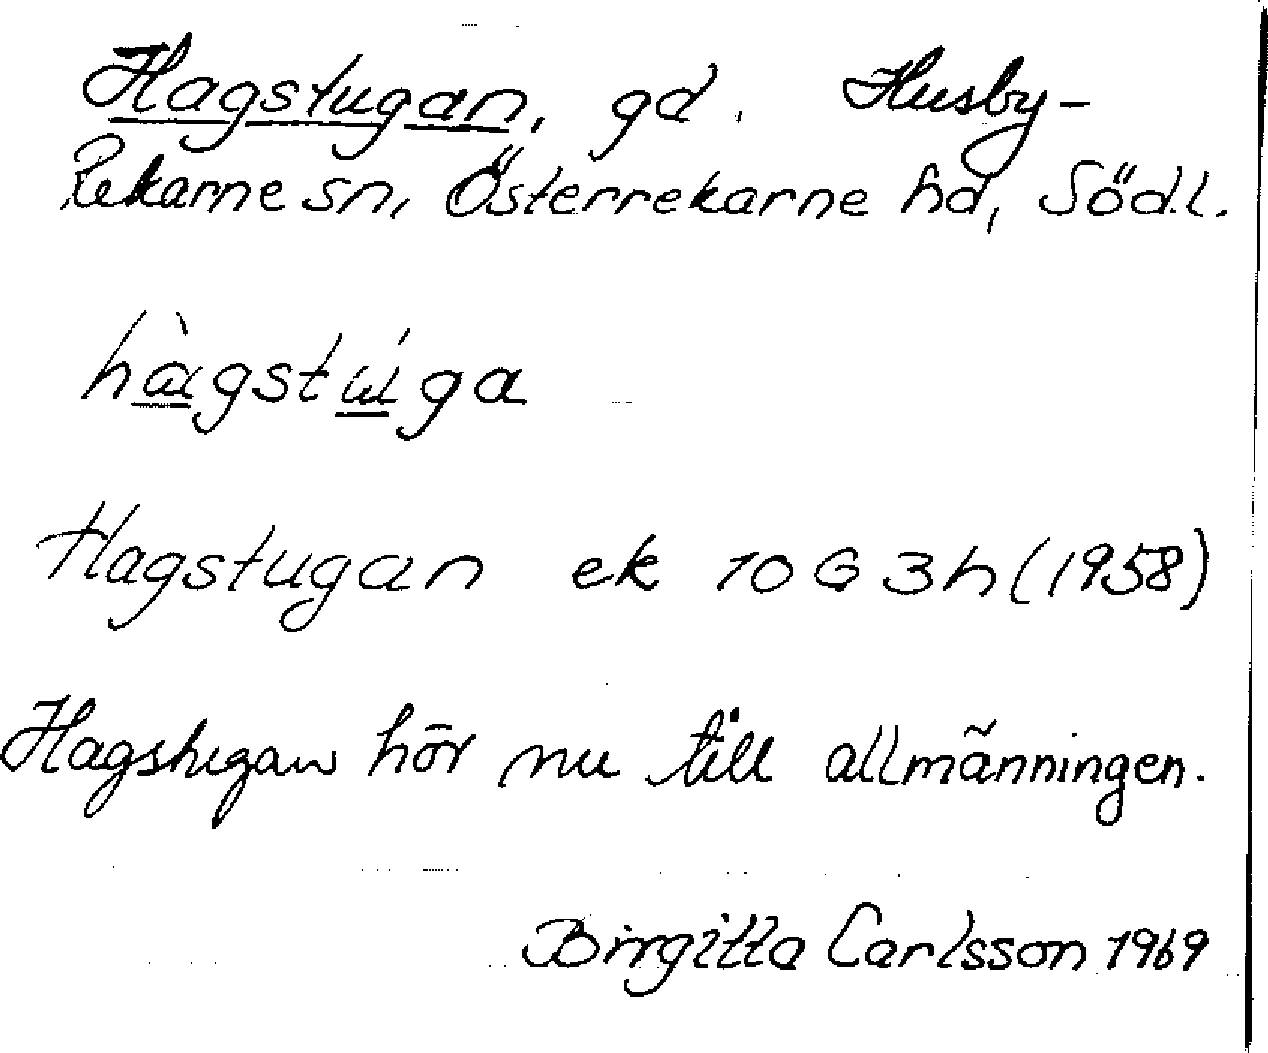 Hagstugan, gd. Husby-
Rekarne sn, Österrekarne hd, Södl.
hàgstúga
Hagstugan ek 10G3h (1958)
Hagstugan hör nu till allmänningen.
Birgitta Carlsson 1969